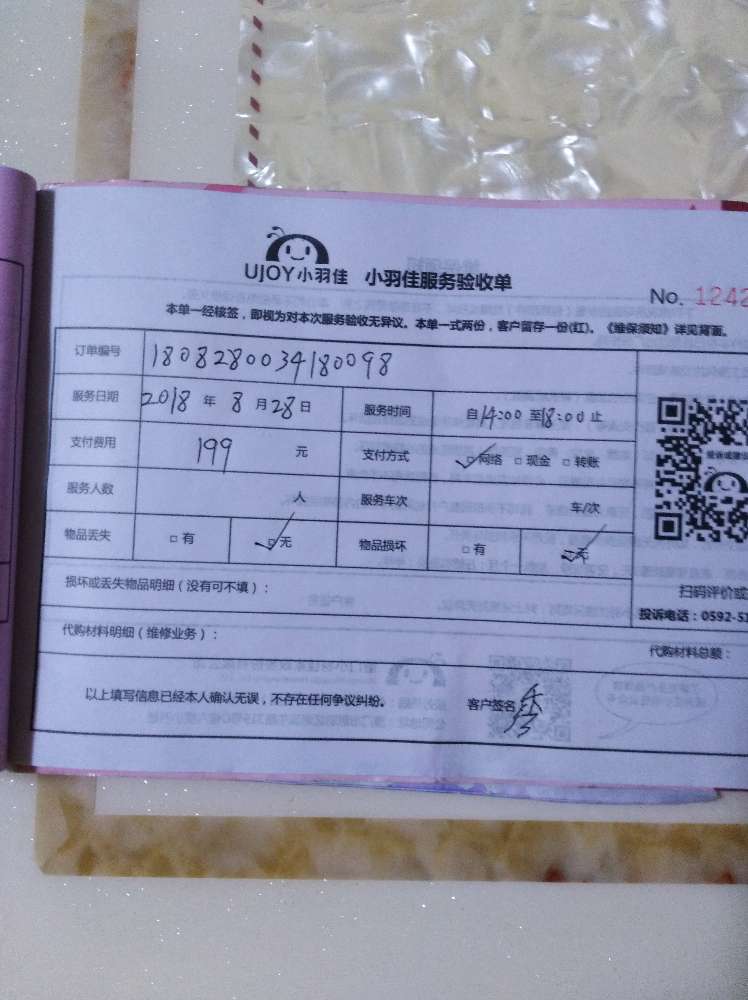 UJOY小羽佳 小羽佳服务验收单
No. 1242
本单一经核签，即视为对本次服务验收无异议。本单一式两份，客户留存一份(红)。《维保须知》详见背面。
订单编号 1808280034180098
服务日期 2018 年 8 月 28 日 服务时间 自14:00 至18:00 止
支付费用 199 元 支付方式 ☑网络 □现金 □转账
服务人数 人 服务车次 车/次
物品丢失 □有 ☑无 物品损坏 □有 ☑无
扫码评价或
损坏或丢失物品明细（没有可不填）：
投诉电话：0592-51
代购材料明细（维修业务）： 代购材料总额：
以上填写信息已经本人确认无误，不存在任何争议纠纷。 客户签名